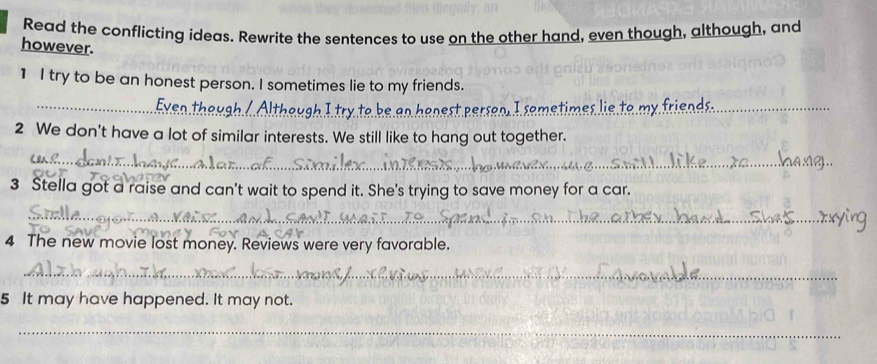 Read the conflicting ideas. Rewrite the sentences to use on the other hand, even though, although, and
however.
1 I try to be an honest person. I sometimes lie to my friends.
Even though / Although I try to be an honest person, I sometimes lie to my friends.
2 We don't have a lot of similar interests. We still like to hang out together.
we don't have a lot of similer interests however we still like to hang
out
3 Stella got a raise and can't wait to spend it. She's trying to save money for a car.
Stella got a raise and can't wait to spend it on the other hand she's trying
to save money for a car
4 The new movie lost money. Reviews were very favorable.
Although the lost money were very favorable
5 It may have happened. It may not.